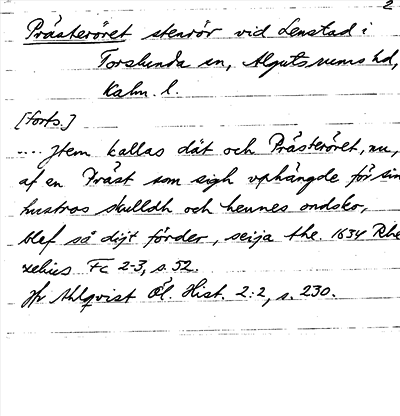 2
Prästeröret stenrör vid Lenstad i
Torslunda sn, Algutsrums hd,
Kalm. l.
[forts.]
.... Jtem kallas dät och Prästeröret, nu,
af en Präst som sigh vphängde för sin
hustros skulldh och hennes ondsko,
blef så dijt förder, seija the. 1634 Rhe
zelius Fc 2-3, s. 52.
Jfr Ahlqvist Öl. Hist. 2:2, s. 230.